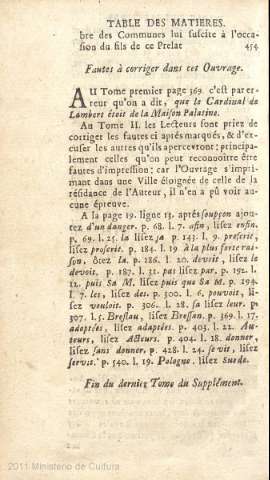 TABLE DES MATIERES.
bre des Communes lui suscite à l'occa-
sion du fils de ce Prelat 454
Fautes à corriger dans cet Ouvrage.
AU Tome premier page 369. c'est par er-
reur qu'on a dit, que le Cardinal de
Lamberg étoit de la Maison Palatine.
Au Tome II. les Lecteurs sont priez de
corriger les fautes ci aprés marqués, & d'ex-
cuser les autres qu'ils apercevront; principa-
lement celles qu'on peut reconnoitre être
fautes d'impression; car l'Ouvrage s'impri-
mant dans une Ville éloignée de celle de la
résidance de l'Auteur, il n'en a pû voir au-
cune épreuve.
A la page 19. ligne 13. aprés soupçon ajou-
tez d'un danger. p. 68. l. 7. afin, lisez enfin.
p. 69. l. 25. la lisez ja p. 143. l. 9. preserit,
lisez proscrit. p. 184. l. 19 à la plus forte rai-
son, ôtez la. p. 186. l. 20. devoit, lisez le
devoit. p. 187. l. 31. pas lisez par. p. 192. l.
12. puis Sa M. lisez puis que Sa M. p. 194.
l. 7. les, lisez des. p. 300. l. 6. pouvoit, li-
sez vouloit. p. 306. l. 28. sa lisez leur. p.
307. l. 5. Breslau, lisez Bressan. p. 369. l. 17.
adoptées, lisez adaptées. p. 403. l. 22. Au-
teurs, lisez Acteurs. p. 404. l. 28. donner,
lisez sans donner. p. 428. l. 24. se vit, lisez
servit. p. 540. l. 19. Pologne. lisez Suede.
Fin du dernier Tome du Supplément.
2011 Ministerio de Cultura